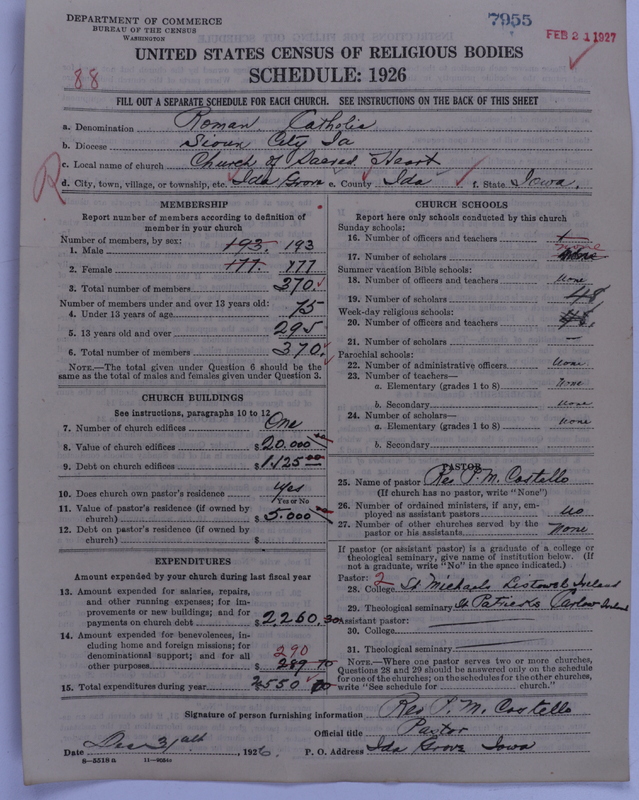 DEPARTMENT OF COMMERCE
BUREAU OF THE CENSUS
WASHINGTON
7955
FEB 21 1927
88
UNITED STATES CENSUS OF RELIGIOUS BODIES
SCHEDULE: 1926
FILL OUT A SEPARATE SCHEDULE FOR EACH CHURCH. SEE INSTRUCTIONS ON THE BACK OF THIS SHEET
a. Denomination Roman Catholic
b. Diocese Sioux City Ia
c. Local name of church Church of Sacred Heart
d. City, town, village, or township, etc. Ida Grove e. County Ida f. State Iowa.
R
MEMBERSHIP
Report number of members according to definition of
member in your church
Number of members, by sex:
1. Male 193. 193
2. Female 177. 177
3. Total number of members 370.
Number of members under and over 13 years old:
4. Under 13 years of age 75
5. 13 years old and over 295
6. Total number of members 370.
NOTE.—The total given under Question 6 should be the
same as the total of males and females given under Question 3.
CHURCH BUILDINGS
See instructions, paragraphs 10 to 12
7. Number of church edifices One
8. Value of church edifices $20.000
9. Debt on church edifices $1.125 00
10. Does church own pastor's residence yes
Yes or No
11. Value of pastor's residence (if owned by
church) $5.000
12. Debt on pastor's residence (if owned by
church) $
EXPENDITURES
Amount expended by your church during last fiscal year
13. Amount expended for salaries, repairs,
and other running expenses; for im-
provements or new buildings; and for
payments on church debt $2,260,30
14. Amount expended for benevolences, in-
cluding home and foreign missions; for
denominational support; and for all
other purposes 290 $289 70
15. Total expenditures during year 2550 00
CHURCH SCHOOLS
Report here only schools conducted by this church
Sunday schools:
16. Number of officers and teachers
none
17. Number of scholars
Summer vacation Bible schools:
18. Number of officers and teachers none
19. Number of scholars 48
Week-day religious schools:
20. Number of officers and teachers
21. Number of scholars —
Parochial schools:
22. Number of administrative officers none
23. Number of teachers—
a. Elementary (grades 1 to 8) none
b. Secondary none
24. Number of scholars—
a. Elementary (grades 1 to 8) none
b. Secondary
PASTOR
25. Name of pastor Rev P. M. Costello
(If church has no pastor, write "None")
26. Number of ordained ministers, if any, em-
ployed as assistant pastors no
27. Number of other churches served by the
pastor or his assistants none
If pastor (or assistant pastor) is a graduate of a college or
theological seminary, give name of institution below. (If
not a graduate, write "No" in the space indicated.)
Pastor: 2
28. College St. Michaels Listowel Ireland
29. Theological seminary St Patricks Carlow Ireland
Assistant pastor:
30. College
31. Theological seminary
NOTE.—Where one pastor serves two or more churches,
Questions 28 and 29 should be answered only on the schedule
for one of the churches; on the schedules for the other churches,
write "See schedule for church."
Signature of person furnishing information Rev P. M. Costello
Official title Pastor
Date Dec 31, 1926. P. O. Address Ida Grove Iowa
8—5518 a